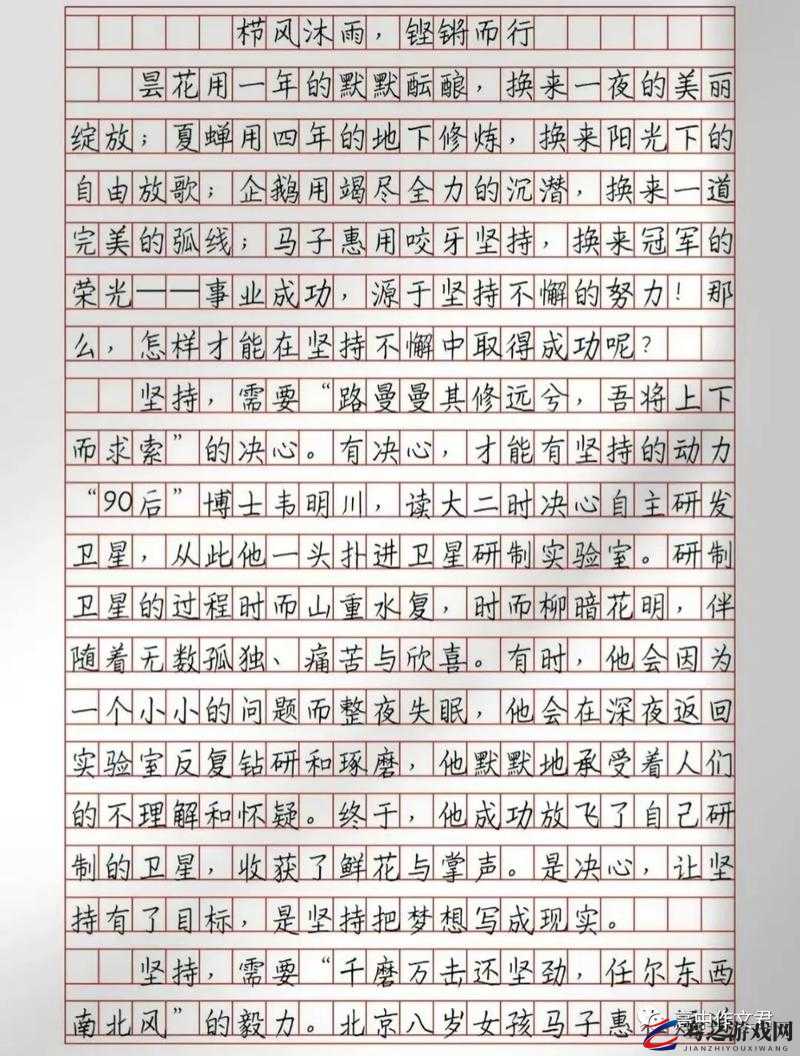 栉风沐雨，铿锵而行
昙花用一年的默默酝酿，换来一夜的美丽
绽放；夏蝉用四年的地下修炼，换来阳光下的
自由放歌；企鹅用竭尽全力的沉潜，换来一道
完美的弧线；马子惠用咬牙坚持，换来冠军的
荣光——事业成功，源于坚持不懈的努力！那
么，怎样才能在坚持不懈中取得成功呢？
坚持，需要“路曼曼其修远兮，吾将上下
而求索”的决心。有决心，才能有坚持的动力
“90后”博士韦明川，读大二时决心自主研发
卫星，从此他一头扑进卫星研制实验室。研制
卫星的过程时而山重水复，时而柳暗花明，伴
随着无数孤独、痛苦与欣喜。有时，他会因为
一个小小的问题而整夜失眠，他会在深夜返回
实验室反复钻研和琢磨，他默默地承受着人们
的不理解和怀疑。终于，他成功放飞了自己研
制的卫星，收获了鲜花与掌声。是决心，让坚
持有了目标，是坚持把梦想写成现实。
坚持，需要“千磨万击还坚劲，任尔东西
南北风”的毅力。北京八岁女孩马子惠
高中作文君
驾之游戏网
JIANZHIYOUXIWANG